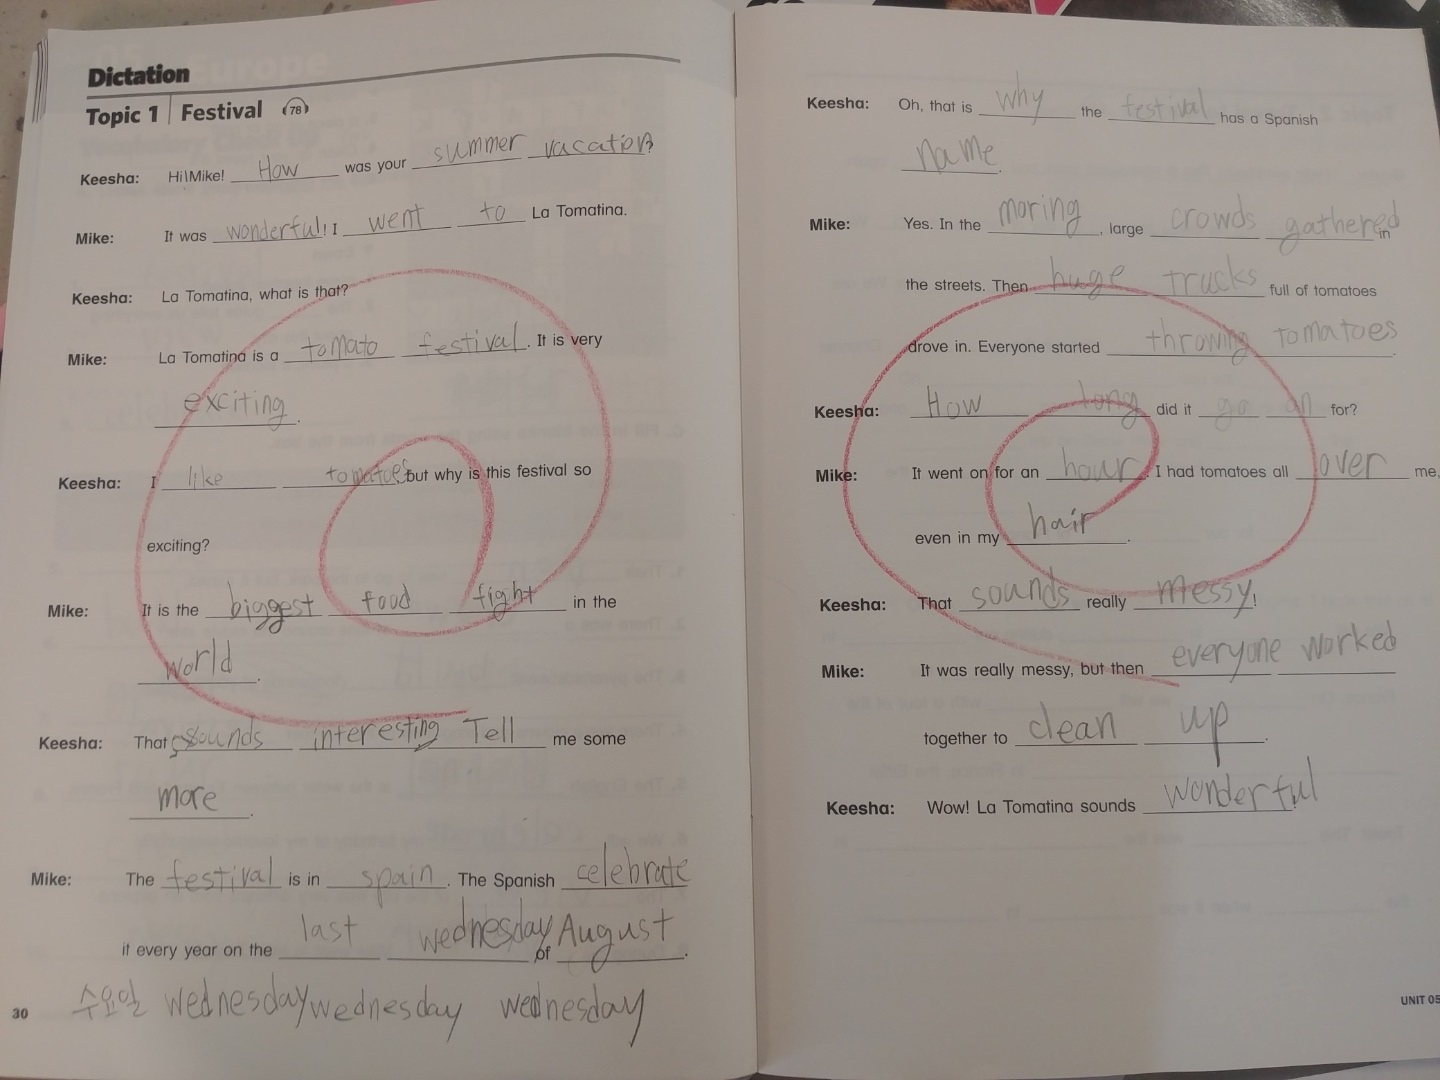 Dictation
Topic 1 | Festival 78
Keesha: Hi! Mike! How was your summer vacation?
Mike: It was wonderful! I went to La Tomatina.
Keesha: La Tomatina, what is that?
Mike: La Tomatina is a tomato festival. It is very
exciting.
Keesha: I like tomatoes but why is this festival so
exciting?
Mike: It is the biggest food fight in the
world.
Keesha: That sounds interesting Tell me some
more.
Mike: The festival is in spain. The Spanish celebrate
it every year on the last wednesday of August.
수요일 wednesday wednesday wednesday
30
Keesha: Oh, that is why the festival has a Spanish
name.
Mike: Yes. In the moring, large crowds gathered in
the streets. Then huge trucks full of tomatoes
drove in. Everyone started throwing tomatoes.
Keesha: How long did it go on for?
Mike: It went on for an hour. I had tomatoes all over me,
even in my hair.
Keesha: That sounds really messy!
Mike: It was really messy, but then everyone worked
together to clean up.
Keesha: Wow! La Tomatina sounds wonderful!
UNIT 05